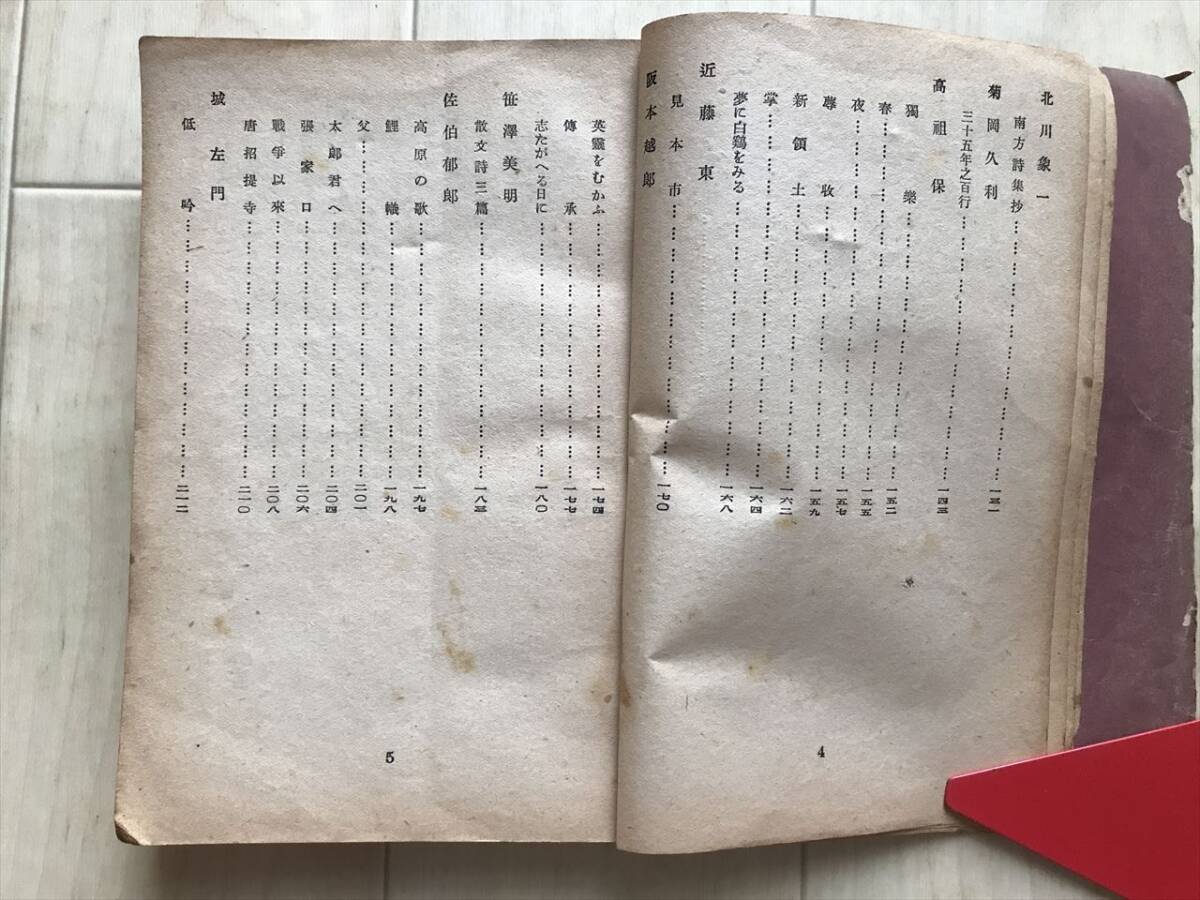 北川象一
南方詩集抄……一三一
菊岡久利
三十五年之百行……一四三
高祖保
獨樂……一五二
春……一五五
夜……一五七
蓐收……一五九
新領土……一六二
掌……一六四
夢に白鶏をみる……一六八
近藤東
見本市……一七〇
阪本越郎
4
英靈をむかふ……一七四
傳承……一七七
志たがへる日に……一八〇
笹澤美明
散文詩三篇……一八三
佐伯郁郎
高原の歌……一九七
鯉幟……一九八
父……二〇一
太郎君へ……二〇四
張家口……二〇六
戰爭以來……二〇八
唐招提寺……二一〇
城左門
低吟……二一二
5